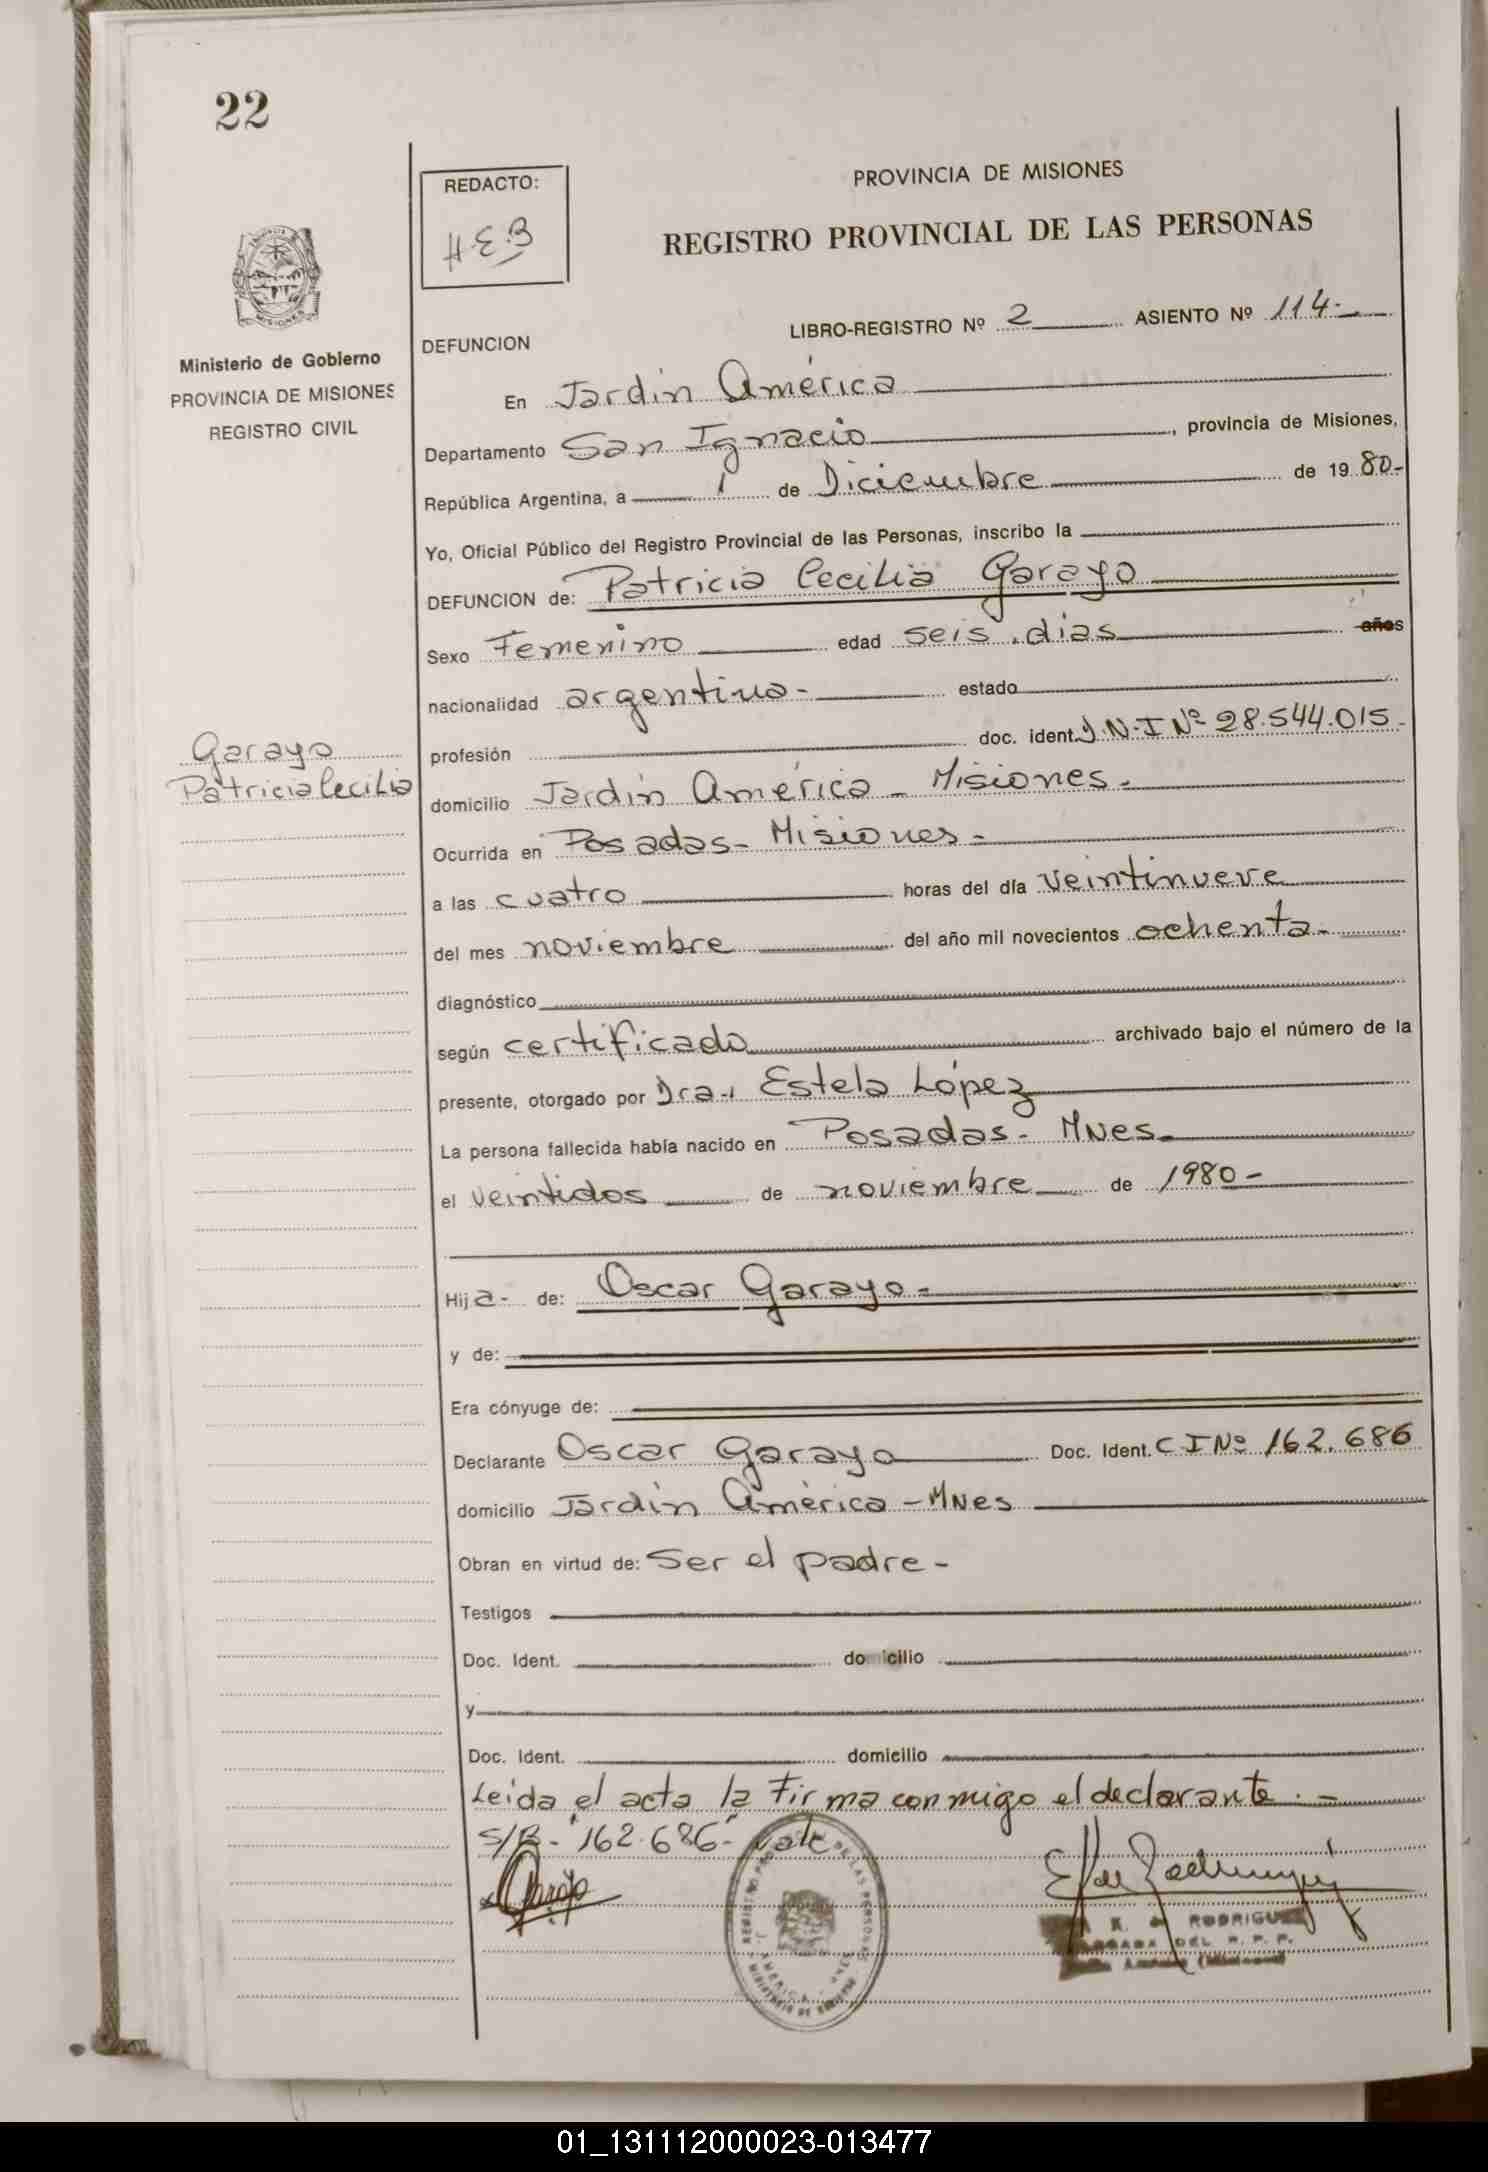 22
REDACTO:
H.E.B
PROVINCIA DE MISIONES
REGISTRO PROVINCIAL DE LAS PERSONAS
MISIONES
Ministerio de Gobierno
PROVINCIA DE MISIONES
REGISTRO CIVIL
DEFUNCION
LIBRO-REGISTRO Nº 2 ASIENTO Nº 114-
En Jardin América
Departamento San Ignacio, provincia de Misiones,
República Argentina, a 1 de Diciembre de 1980-
Yo, Oficial Público del Registro Provincial de las Personas, inscribo la
DEFUNCION de: Patricia Cecilia Garayo
Sexo Femenino edad seis dias años
nacionalidad argentina- estado
profesión doc. ident. D.N.I Nº 28.544.015-
Garayo
Patricia Cecilia
domicilio Jardin América - Misiones-
Ocurrida en Posadas- Misiones-
a las cuatro horas del día veintinueve
del mes noviembre del año mil novecientos ochenta-
diagnóstico
según certificado archivado bajo el número de la
presente, otorgado por Dra. Estela López
La persona fallecida había nacido en Posadas- Mnes-
el veintidos de noviembre de 1980-
Hija- de: Oscar Garayo-
y de:
Era cónyuge de:
Declarante Oscar Garayo Doc. Ident. CI Nº 162.686
domicilio Jardin América - Mnes
Obran en virtud de: Ser el padre-
Testigos
Doc. Ident. domicilio
y
Doc. Ident. domicilio
Leida el acta la firma conmigo el declarante.-
S/B- "162.686-" vale
RODRIGUEZ
DEL R. P. P.
(Misiones)
01_131112000023-013477